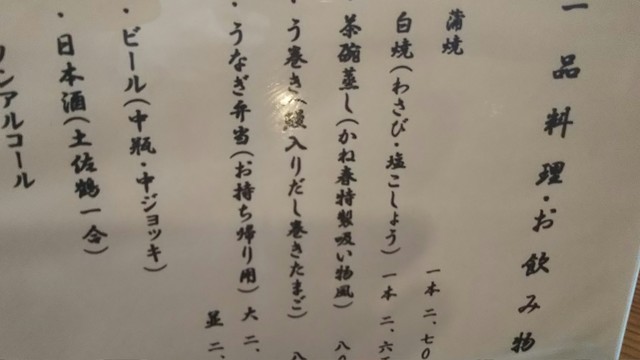 一品料理・お飲み物
蒲焼 一本 二、七〇
白焼(わさび・塩こしょう) 一本 二、六
・茶碗蒸し(かね春特製吸い物風) 八
・う巻き(鰻入りだし巻きたまご) 八
・うなぎ弁当(お持ち帰り用) 大 二、
並 二、
・ビール(中瓶・中ジョッキ)
・日本酒(土佐鶴一合)
ンアルコール